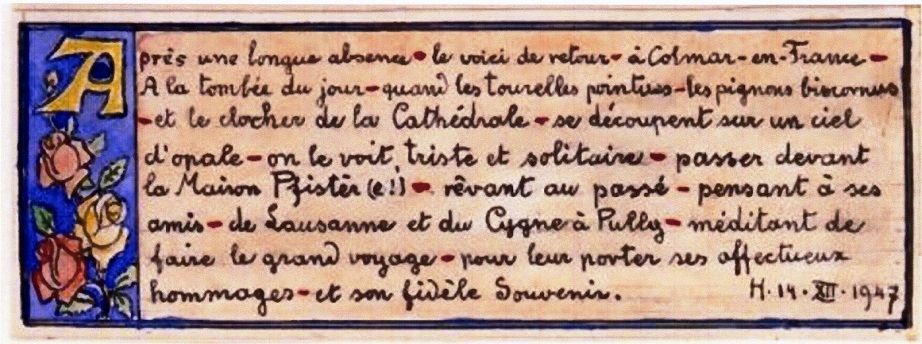 Après une longue absence - le voici de retour - à Colmar-en-France -
A la tombée du jour - quand les tourelles pointues - les pignons biscornus
- et le clocher de la Cathédrale - se découpent sur un ciel
d'opale - on le voit, triste et solitaire - passer devant
la Maison Pfister (e!) - rêvant au passé - pensant à ses
amis - de Lausanne et du Cygne à Pully - méditant de
faire le grand voyage - pour leur porter ses affectueux
hommages - et son fidèle Souvenir. H. 14. XII. 1947